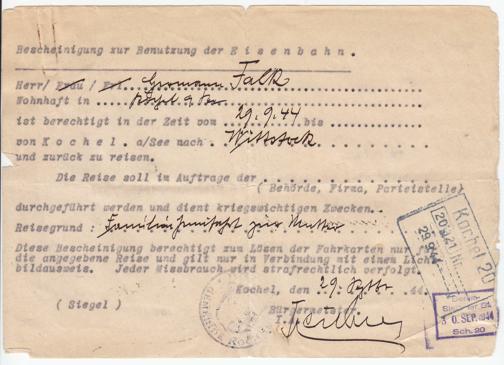 Bescheinigung zur Benutzung der Eisenbahn.
Herr/ Frau / Frl. Hermann Falk
Wohnhaft in Kochel a. See
ist berechtigt in der Zeit vom 29.9.44 bis
von Kochel. a/See nach Wittstock
und zurück zu reisen.
Die Reise soll im Auftrage der
(Behörde, Firma, Parteistelle)
durchgeführt werden und dient kriegswichtigen Zwecken.
Reisegrund: zur Mutter
Diese Bescheinigung berechtigt zum Lösen der Fahrkarten nur
die angegebene Reise und gilt nur in Verbindung mit einem Lich
bildausweis. Jeder Missbrauch wird strafrechtlich verfolgt.
Kochel, den 29. Septbr. 44.
(Siegel)
Bürgermeister.
Kochel 20
29.9.44
30. SEP. 1944
Sch. 20